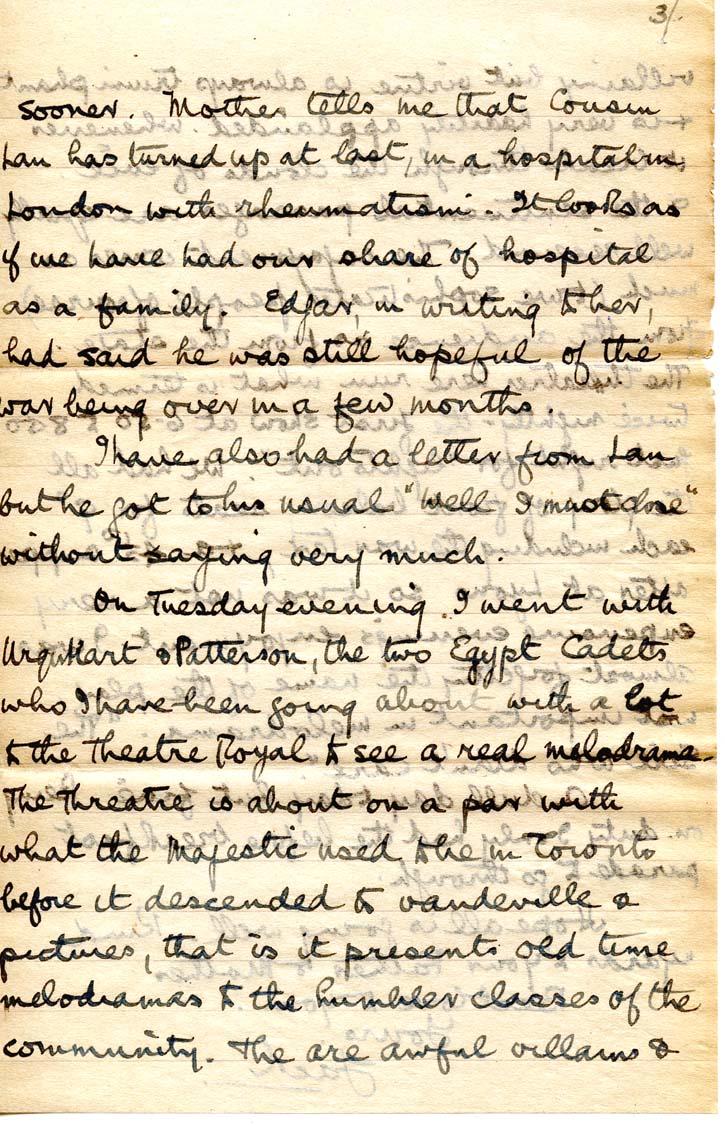 3/.
sooner. Mother tells me that Cousin
Ian has turned up at last, in a hospital in
London with rheumatism. It looks as
if we have had our share of hospital
as a family. Edgar, in writing to her,
had said he was still hopeful of the
war being over in a few months.
I have also had a letter from Ian
but he got to his usual "well I must close"
without saying very much.
On Tuesday evening I went with
Urquhart & Patterson, the two Egypt Cadets
who I have been going about with a lot
to the Theatre Royal to see a real melodrama.
The Threatre is about on a par with
what the Majestic used to be in Toronto
before it descended to vaudeville &
pictures, that is it presents old time
melodramas to the humbler classes of the
community. The are awful villains &